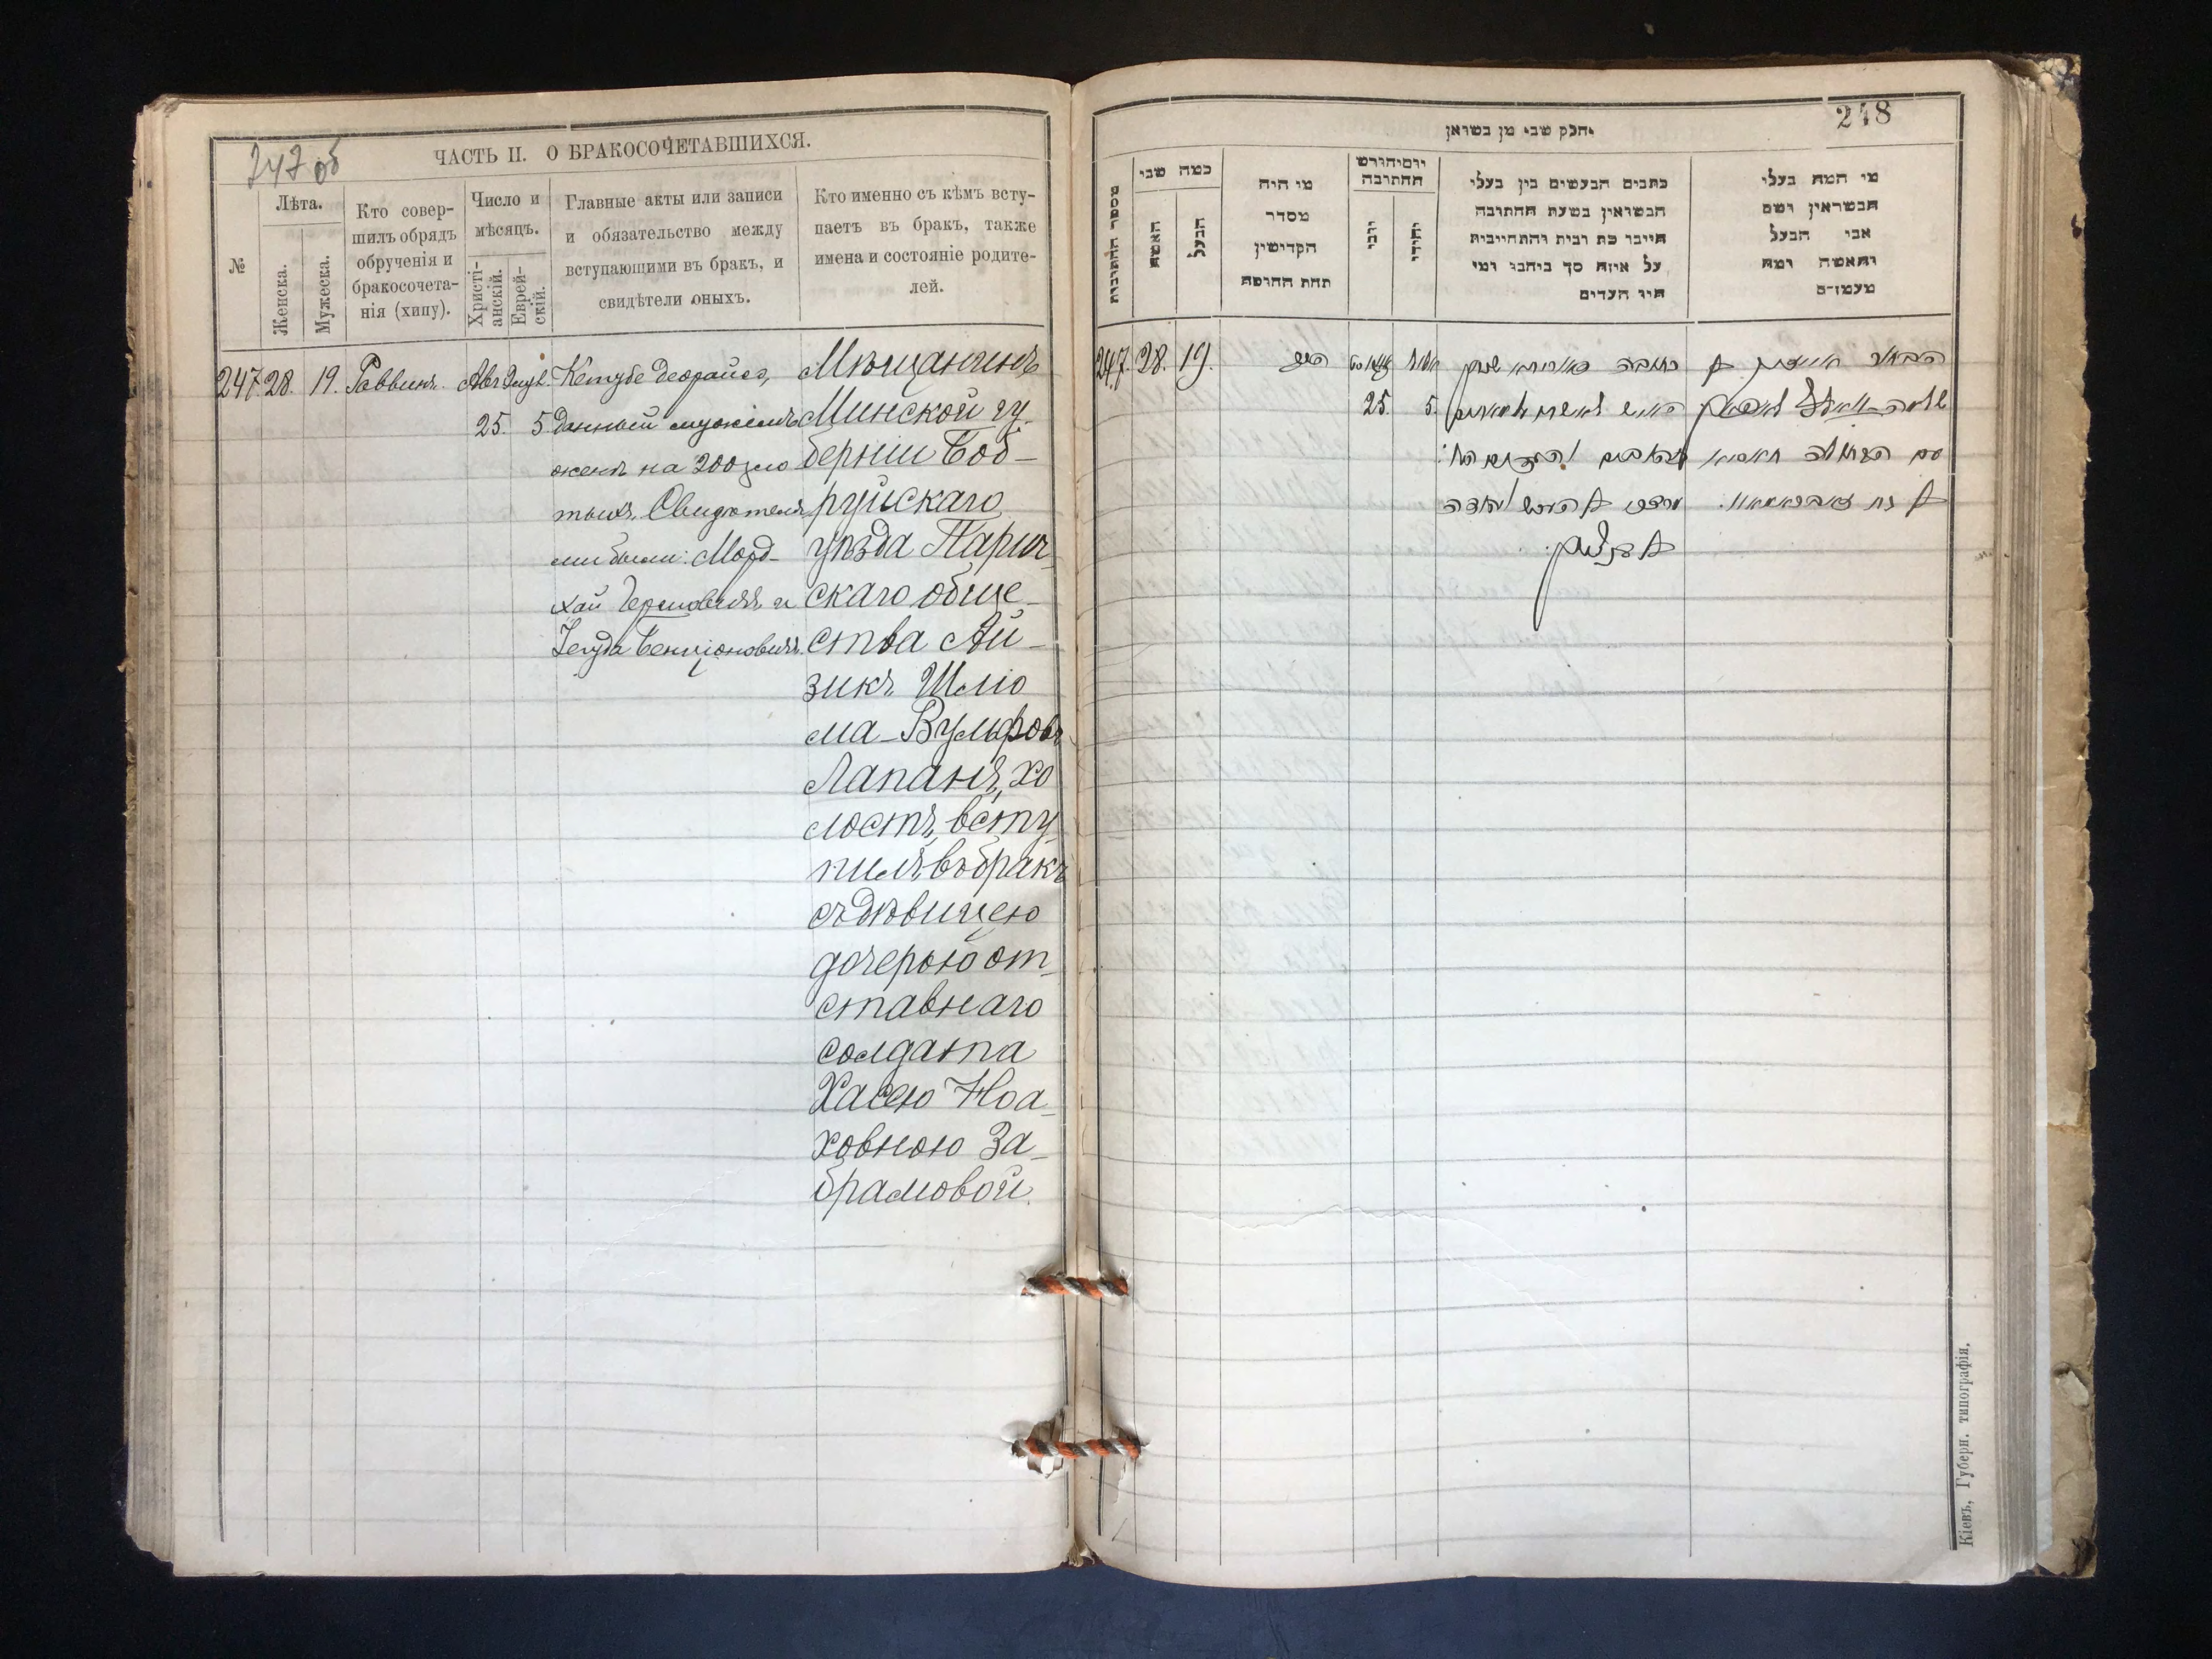 247 об
ЧАСТЬ II. О БРАКОСОЧЕТАВШИХСЯ.
№
Лѣта.
Женска.
Мужеска.
Кто совер-
шилъ обрядъ
обрученія и
бракосочета-
нія (хипу).
Число и
мѣсяцъ.
Христі-
анскій.
Еврей-
скій.
Главные акты или записи
и обязательство между
вступающими въ бракъ, и
свидѣтели оныхъ.
Кто именно съ кѣмъ всту-
паетъ въ бракъ, также
имена и состояніе родите-
лей.
247. 28. 19. Раввинъ. Авг
25. 5
Кетубе деорайсо,
данный мужемъ
женѣ на 200 зло
тыхъ. Свидѣтеля
ми были:Морд-
хай и
Іегуда Бенціоновичъ.
Мѣщанинъ
Минской гу
берніи Боб-
руйскаго
уѣзда Парич
скаго обще-
ства Ай-
зикъ Шліо
ма-Вульфовъ
Лапанъ, хо
лостъ, всту
пилъ въ бракъ
съ дѣвицею
дочерью от-
ставнаго
солдата
Хасею Ноа-
ховною За-
брамовой.
248
חלק שני מן
מספר החתונות
כמה שני
האשה
הבעל
מי היה
מסדר
הקדושין
תחת החופה
יום וחודש
החתונה
יהודי
כתבים הנעשים בין בעלי
הנשואין בשעת החתונה
חייבו כת ובית והתחייבות
על איזה סך ביחבו ומי
היו העדים
מי המה בעלי
הנשואין ושם
אבי הבעל
והאשה ומה
מעמדם
247. 28. 19.
25. 5.
כתובה דאורייתא
הבחור אייזיק בן
עם הבתולה חאסיא
Кіевъ, Губерн. типографія.